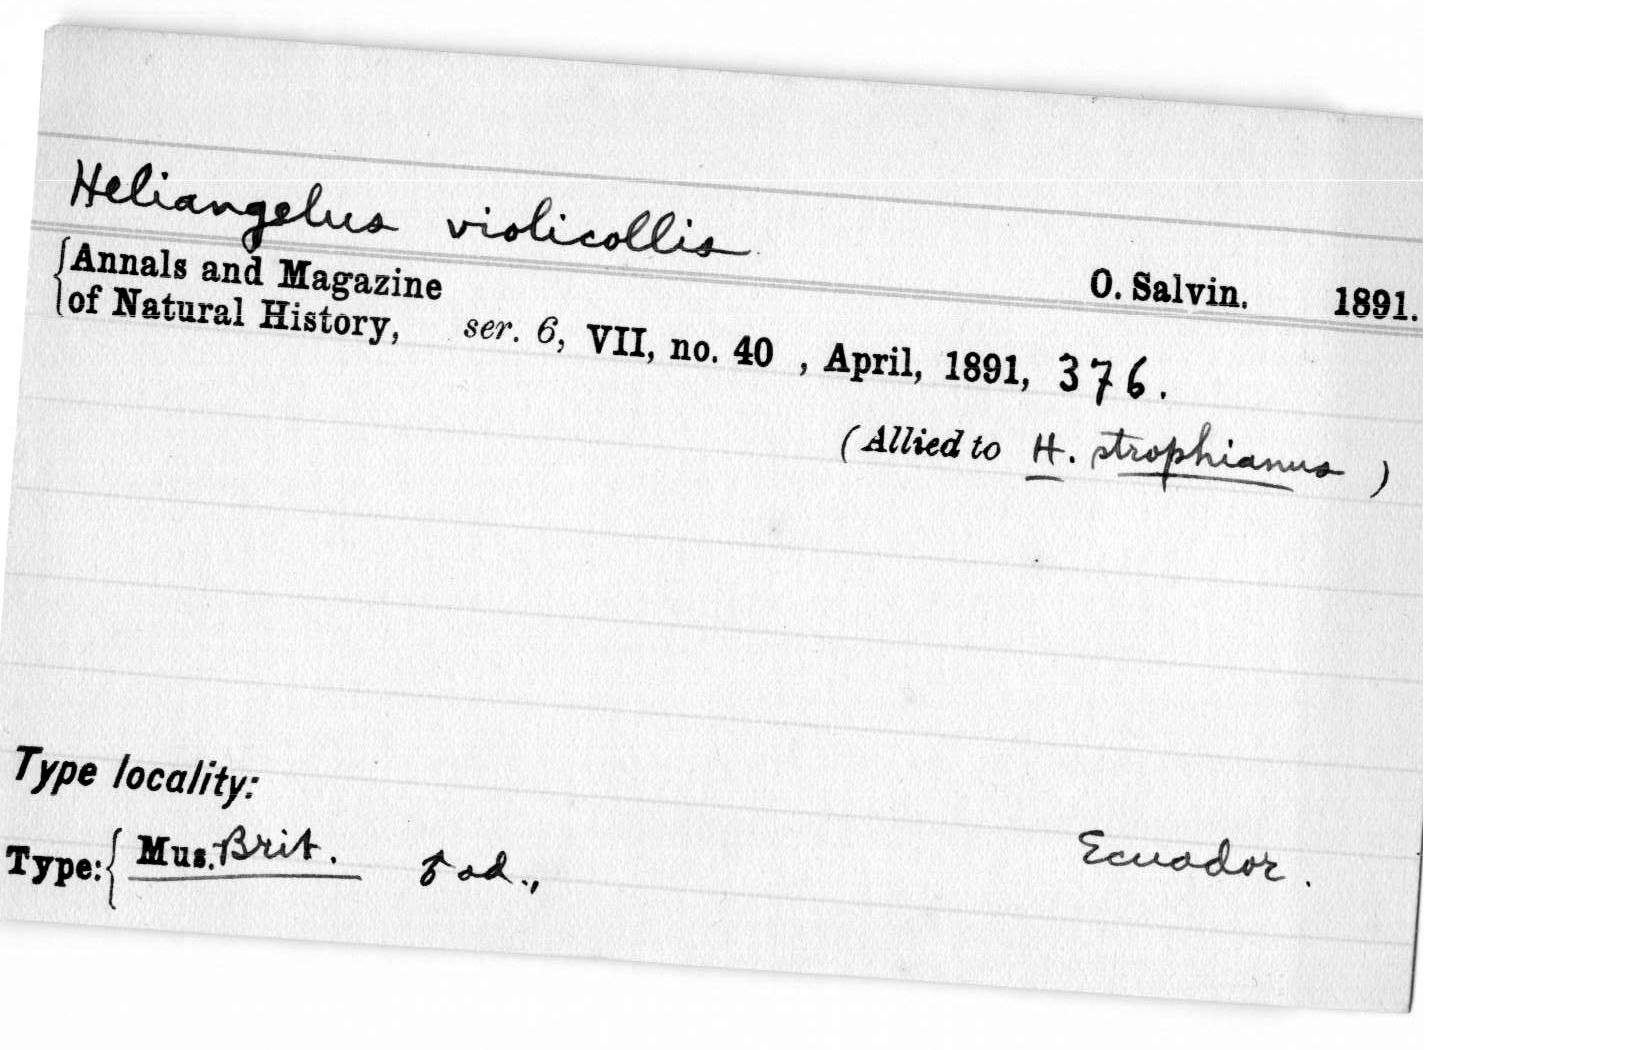 Heliangelus violicollis
O. Salvin. 1891.
{Annals and Magazine
of Natural History, ser. 6, VII, no. 40 , April, 1891, 376.
(Allied to H. strophianus )
Type locality:
Ecuador.
Type:{ Mus. Brit. ad.,